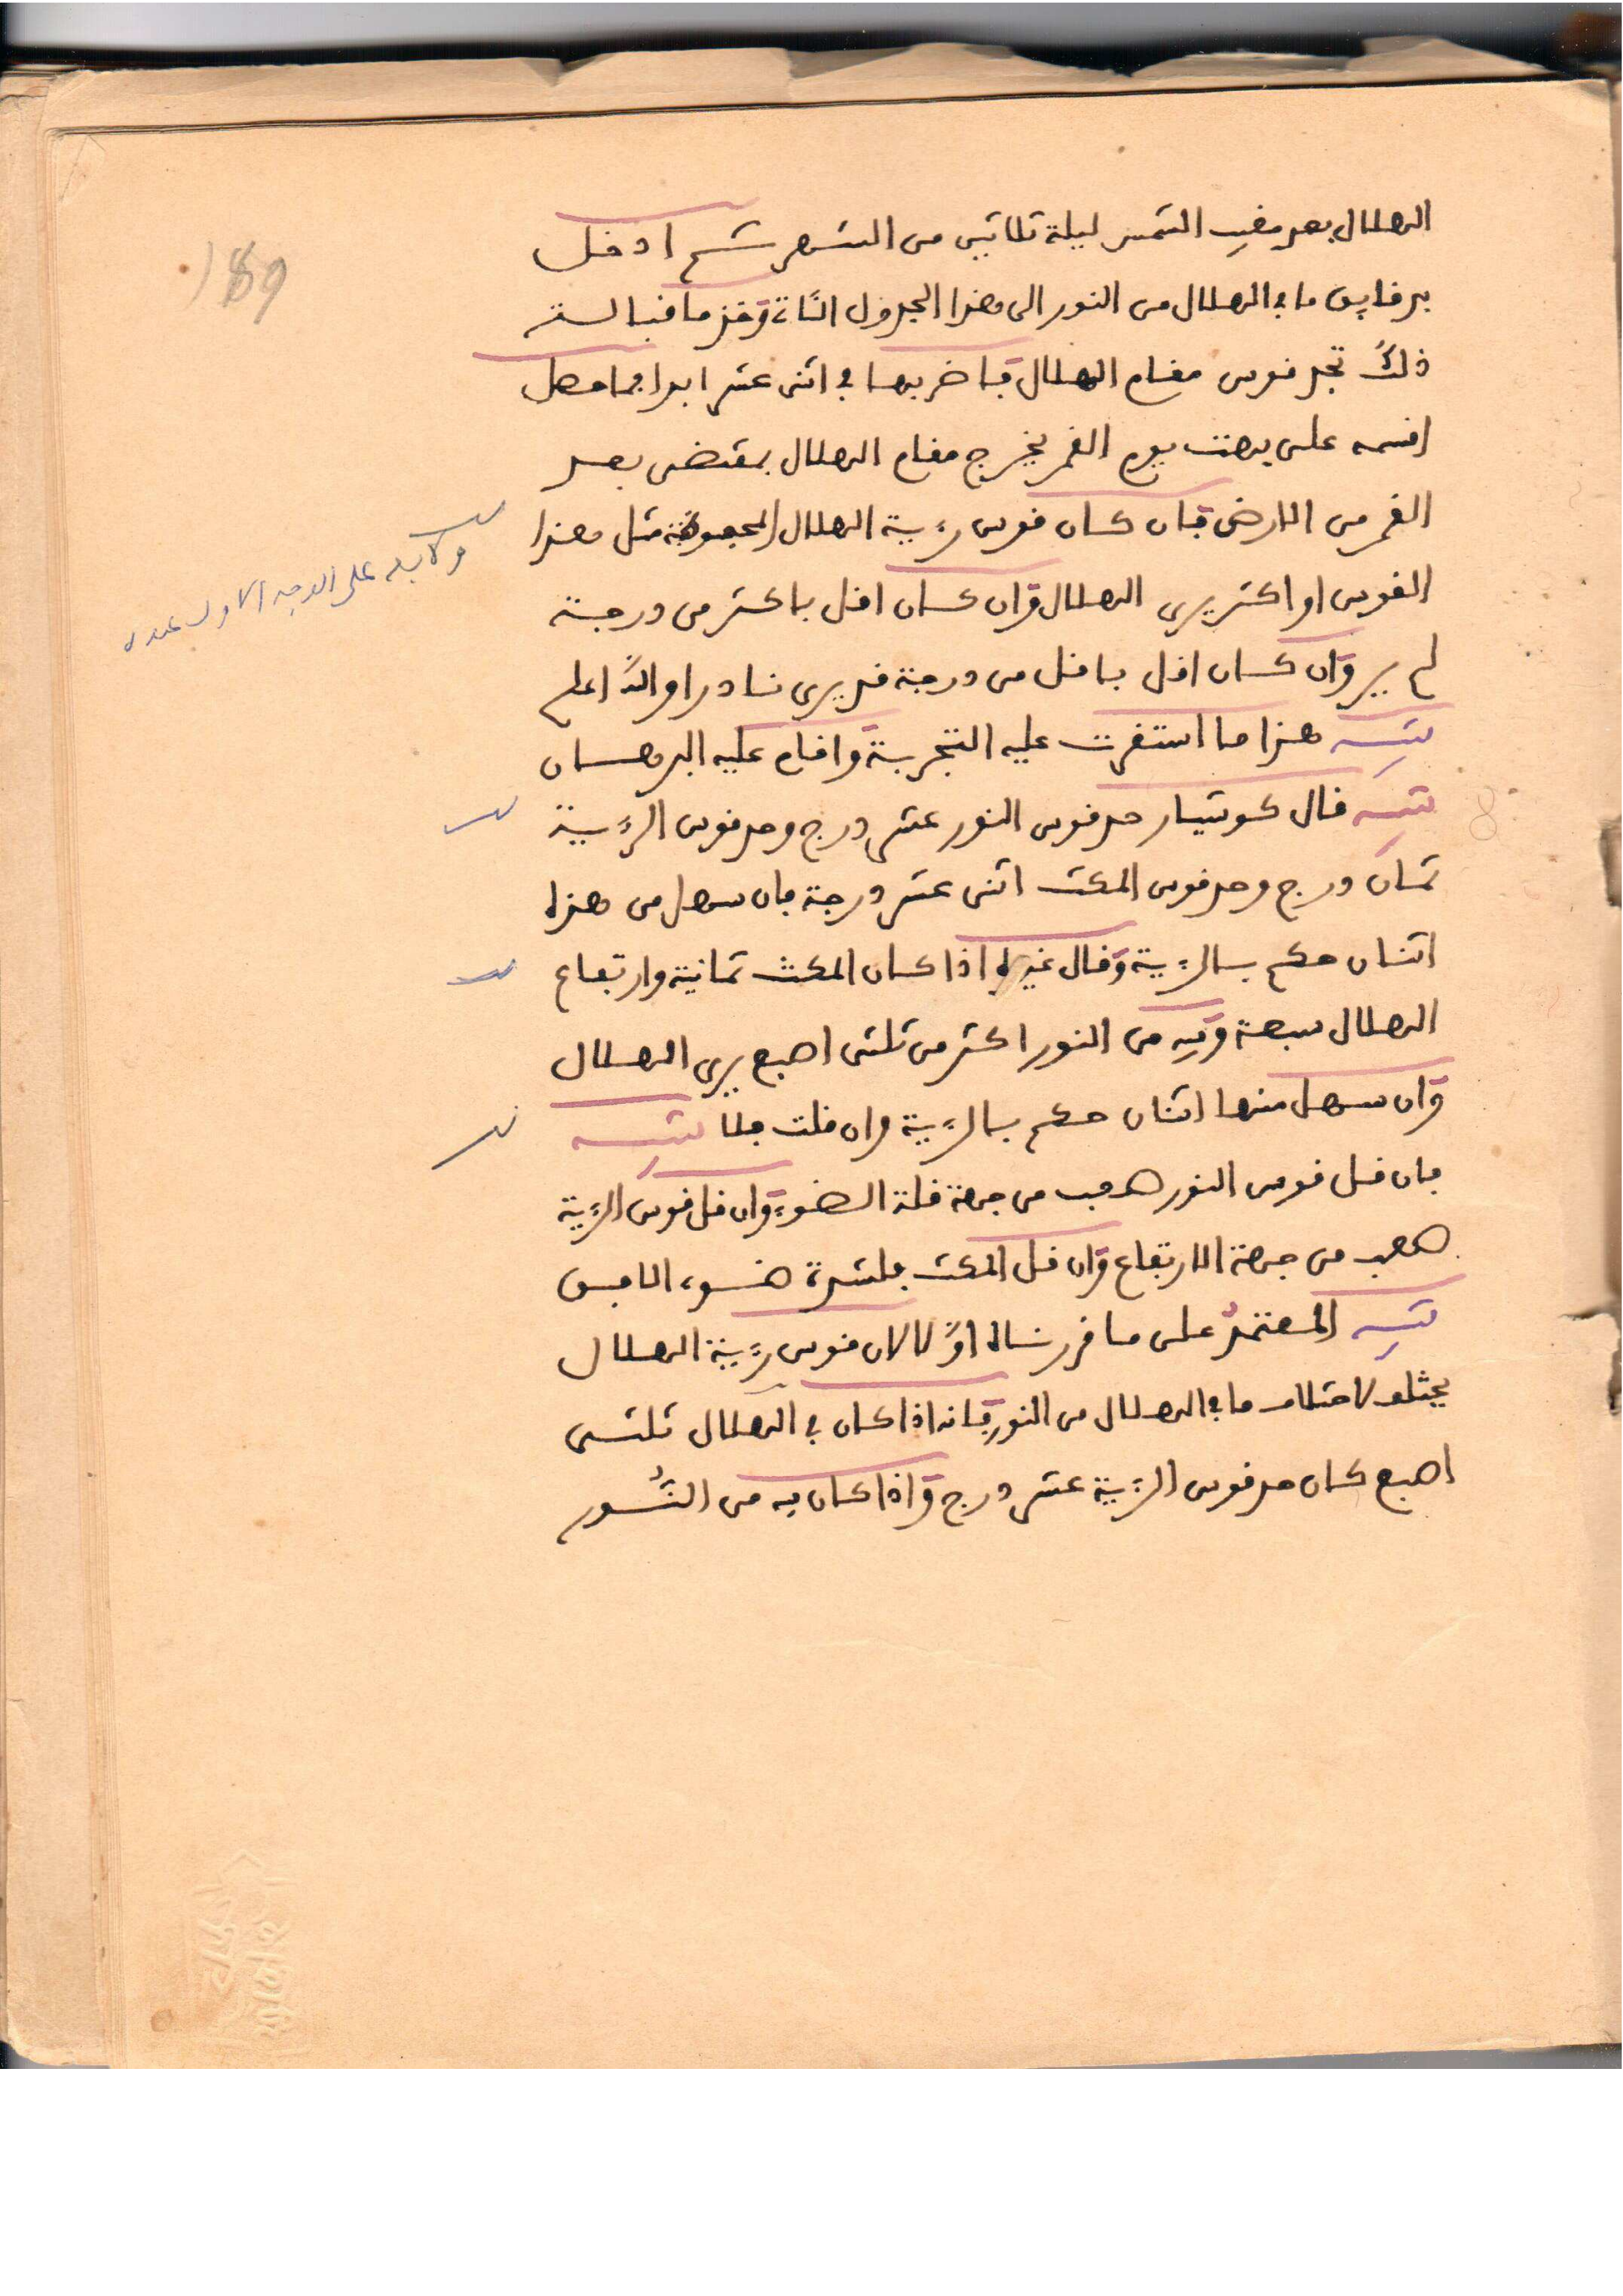 الهلال بعد مغيب الشمس ليلة ثلاثين من الشهر ثم ادخل
بدقايق ما في الهلال من النور الى هذا الجدول الثاني وخذ ما قبالة
ذلك تجد قوس مقام الهلال فاضربها في اثنى عشر ابدا فما حصل
اقسمه على بهت يوم القمر يخرج مقام الهلال بمقتضى بعد
القمر من الارض فان كان قوس رءية الهلال المحفوظة مثل هذا
القوس او اكثر يرى الهلال وان كان اقل باكثر من درجة
لم ير وان كان اقل باقل من درجة قد يرى نادرا والله اعلم
تنبيه هذا ما استقرت عليه التجربة واقام عليه البرهان
تنبيه قال كوشيار حد قوس النور عشر درج وحد قوس الرءية
ثمان درج وحد قوس المكث اثنى عشر درجة فان سهل من هذا
اثنان حكم بالرءية وقال غيره اذا كان المكث ثمانية وارتفاع
الهلال سبعة وفيه من النور اكثر من ثلثى اصبع يرى الهلال
وان سهل منها اثنان حكم بالرءية وان قلت فلا تنبيه
فان قل قوس النور صعب من جهة قلة الضوء وان قل قوس الرءية
صعب من جهة الارتفاع وان قل المكث فلشدة ضوء الافق
تنبيه المعتمد على ما قررناه اولا لان قوس رءية الهلال
يختلف لاختلاف ما في الهلال من النور فانه اذا كان في الهلال ثلثى
اصبع كان حد قوس الرءية عشر درج واذا كان فيه من النور
على الوجه الاول عنده
189
8